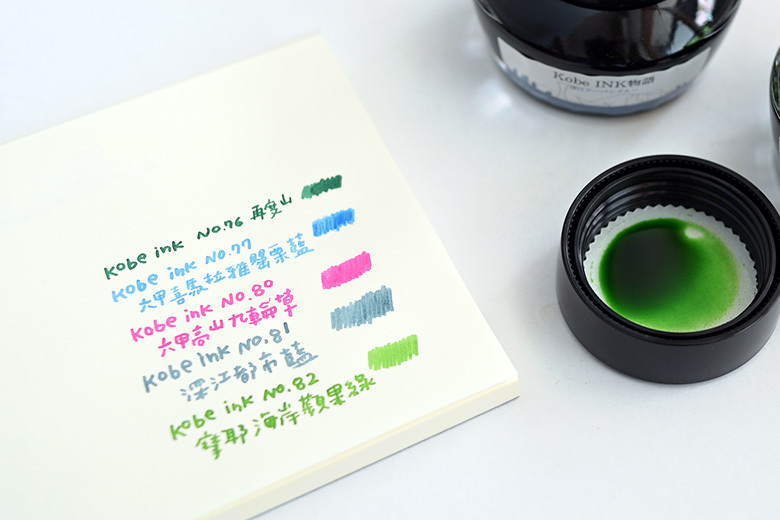 Kobe INK物語
Kobe ink No.76 再度山
Kobe ink No.77
六甲喜馬拉雅罌栗藍
Kobe ink No.80
六甲高山九輪草
Kobe ink No.81
深江都市藍
Kobe ink No.82
摩耶海岸蘋果綠